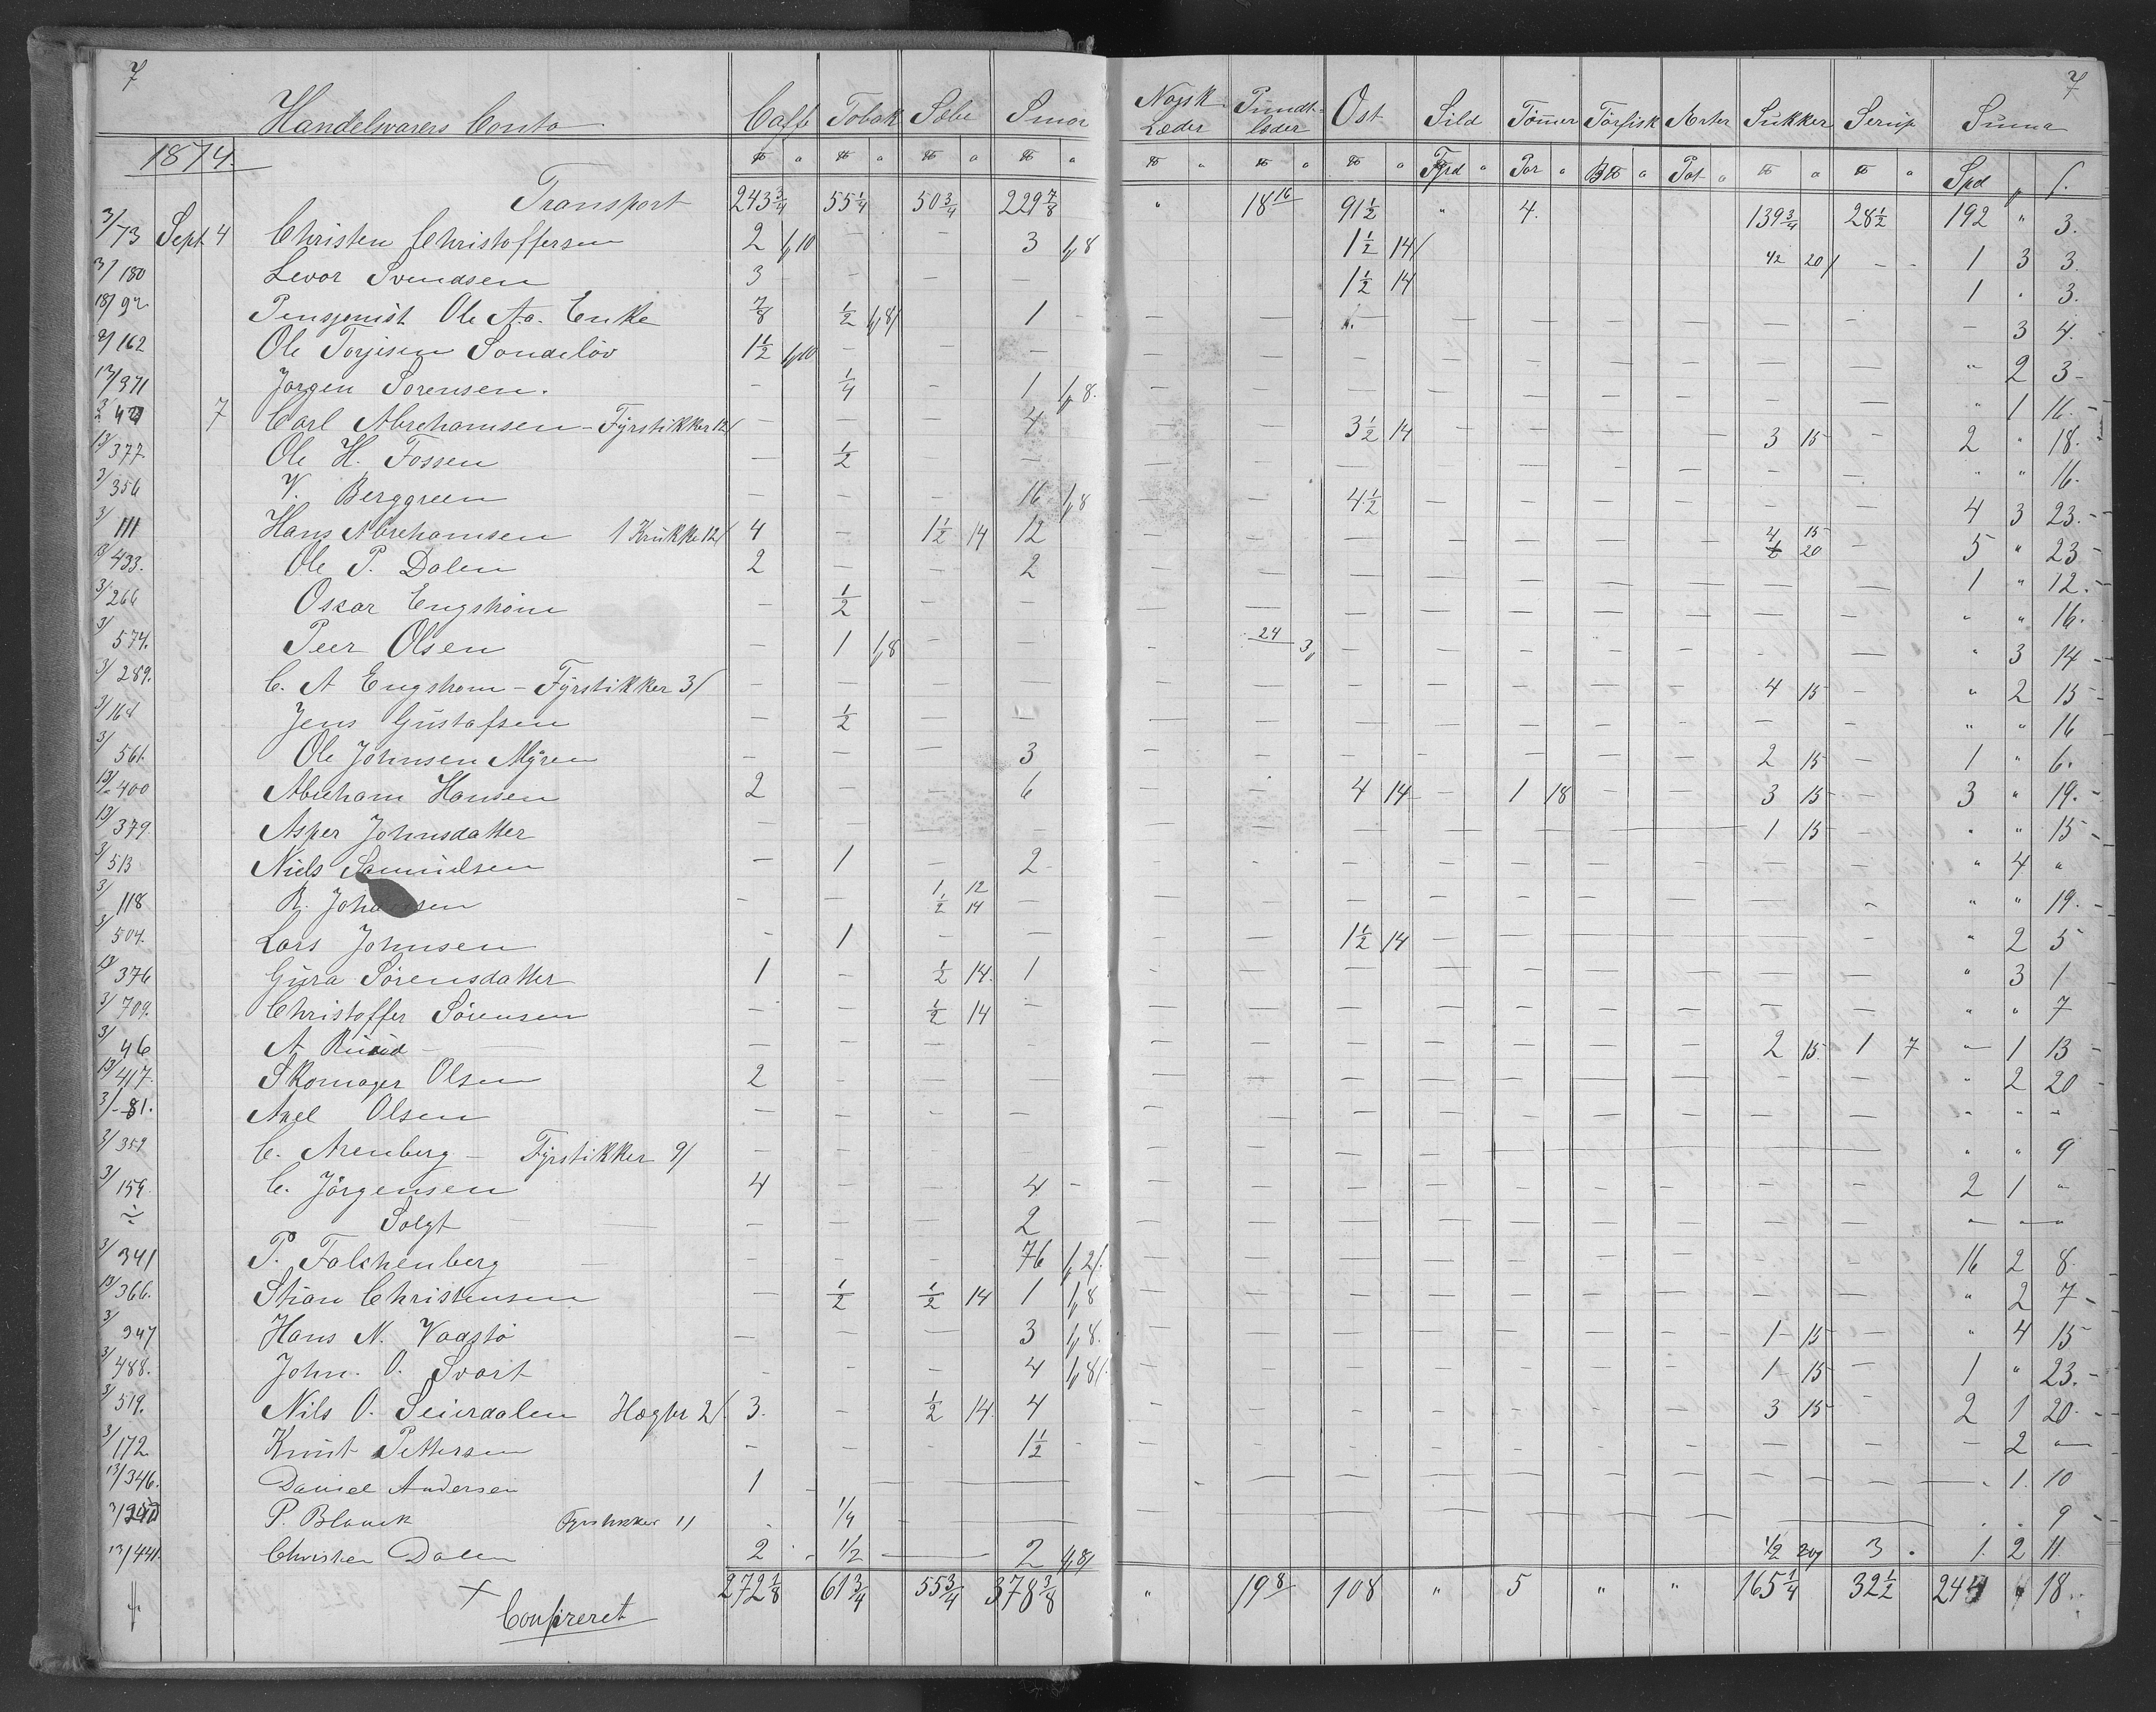 7
7
Handelsvarers Conto Caffe Tobak Sæbe Smør Norsk Læder Pundt-læder Ost Sild Tømer Törfisk Arter Sukker Serup Suma
1874. ℔ " ℔ " ℔ " ℔ " ℔ " ℔ " ℔ " " Par " B℔ " Pot " ℔ " ℔ " Spd " ſ.
Transport 243 3/4 55 1/4 50 3/4 229 7/8 " 18 16 91 1/2 " 4. 139 3/4 28 1/2 192 " 3.
3/73 Sept 4 Christen Christoffersen 2 1/10 – – 3 1/8 1 1/2 14/ 42 20/ – – 1 3 3.
3/180 Levor Svendsen 3 – – – 1 1/2 14 1 . 3.
18/92 Ole Aa. Enke 7/8 1/2 1/8/ 1 – 3 4.
162 Ole Torjisen Sondeløv 1 1/2 1/10 – – – " 2 3 –
13/371 Jørgen Sorensen. – 1/4 – 1 1/8. " 1 16. –
7 Carl Abrehamsen – Fyrstikker 12/ – – – 4 3 1/2 14 3 15 – 2 " 18.
13/377 Ole H. Fossen – 1/2 – – " " 16.
3/356 V. Berggreen – – – 16 1/8 4 1/2 4 3 23. –
3/111 Hans Abrehamsen 1 Krukke 12/ 4 – 1 1/2 14 12 4 15 20 – 5 " 23 –
13/433. Ole P. Dalen 2 – – 2 1 " 12. –
3/266 Oscar Engström – 1/2 – – " " 16.
3/574. Peer Olsen – 1 1/8 – – 24 3/ " 3 14 –
3/289. C. A Engstrom – Fyrstikker 3/ – – – – 4 15 – " 2 15 –
3/164 Jens Gustafsen – 1/2 – – " " 16
3/561. Ole Johnsen Myren – – – 3 2 15 – 1 " 6.
13/400 Abreham Hansen 2 – – 6 4 14 – 1 18 3 15 – 3 " 19. –
13/379. Asper Johnsdatter – – – – 1 15 – " " 15 –
3/513 Niels Samuelsen – 1 – 2 – " 4 "
3/118 R. – – 1 12 1/2 14 – " " 19. –
3/504. Lars Johnsen – 1 – – 1 1/2 14 " 2 5
13/376 Gura Sörensdatter 1 – 1/2 14. 1 " 3 1
3/709. Christoffer Sörensen – – 1/2 14 – " " 7
3/46 A. – – – – 2 15 1 7 – 1 13 –
13/417. Skomager Olsen 2 – – – " 2 20
3/81. Axel Olsen – – – – " " –
3/359 C. Arenberg – Fyrstikker 9/ – – – – " " 9
3/159 C. Jörgensen 4 – – 4 – 2 1 "
÷ Solgt – – – 2 " – "
3/341 P. Falchenberg – – – 76 1/2/. 16 2 8.
13/366. Stian Christensen – 1/2 1/2 14 1 1/8 " 2 7 –
3/347 Hans N. Vaastö – – – 3 1/8. 1 – 15 – " 4 15
3/488. John. O. Svart – – – 4 1/8/. 1 – 15 – 1 " 23. –
3/519. Nils O. Seierdalen 2/. 3. – 1/2 14. 4 3 15 – 2 1 20. –
3/172 Knut Pettersen – – – 1 1/2 – – 2 –
13/346. Daniel Andersen 1 – – – . 1. 10
P. Blanck Fyrstikker 1/ – 1/4 – – . . 9 –
13/441. Christen Dalen 2 – 1/2 – 2 1/8/ 1/2 20/ 3 . 1. 2 11.
272 1/8 61 3/4 55 3/4 378 3/8 " 19 8 108 " 5 " " 165 1/4 32 1/2 244 " 18.
× Confireret